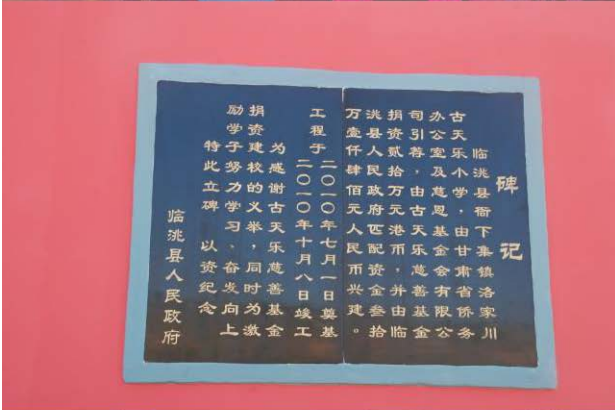 碑记
临洮县衙下集镇洛家川
古天乐小学，由甘肃省侨务
办公室及慈恩基金会有限公
司引荐，由古天乐慈善基金
捐资贰拾万元港币，并由临
洮县人民政府匹配资金叁拾
万壹仟肆佰元人民币兴建。
工程于二〇一〇年七月一日奠基
二〇一〇年十月八日竣工
为感谢古天乐慈善基金
捐资建校的义举，同时为激
励学子努力学习、奋发向上
特此立碑 以资纪念
临洮县人民政府